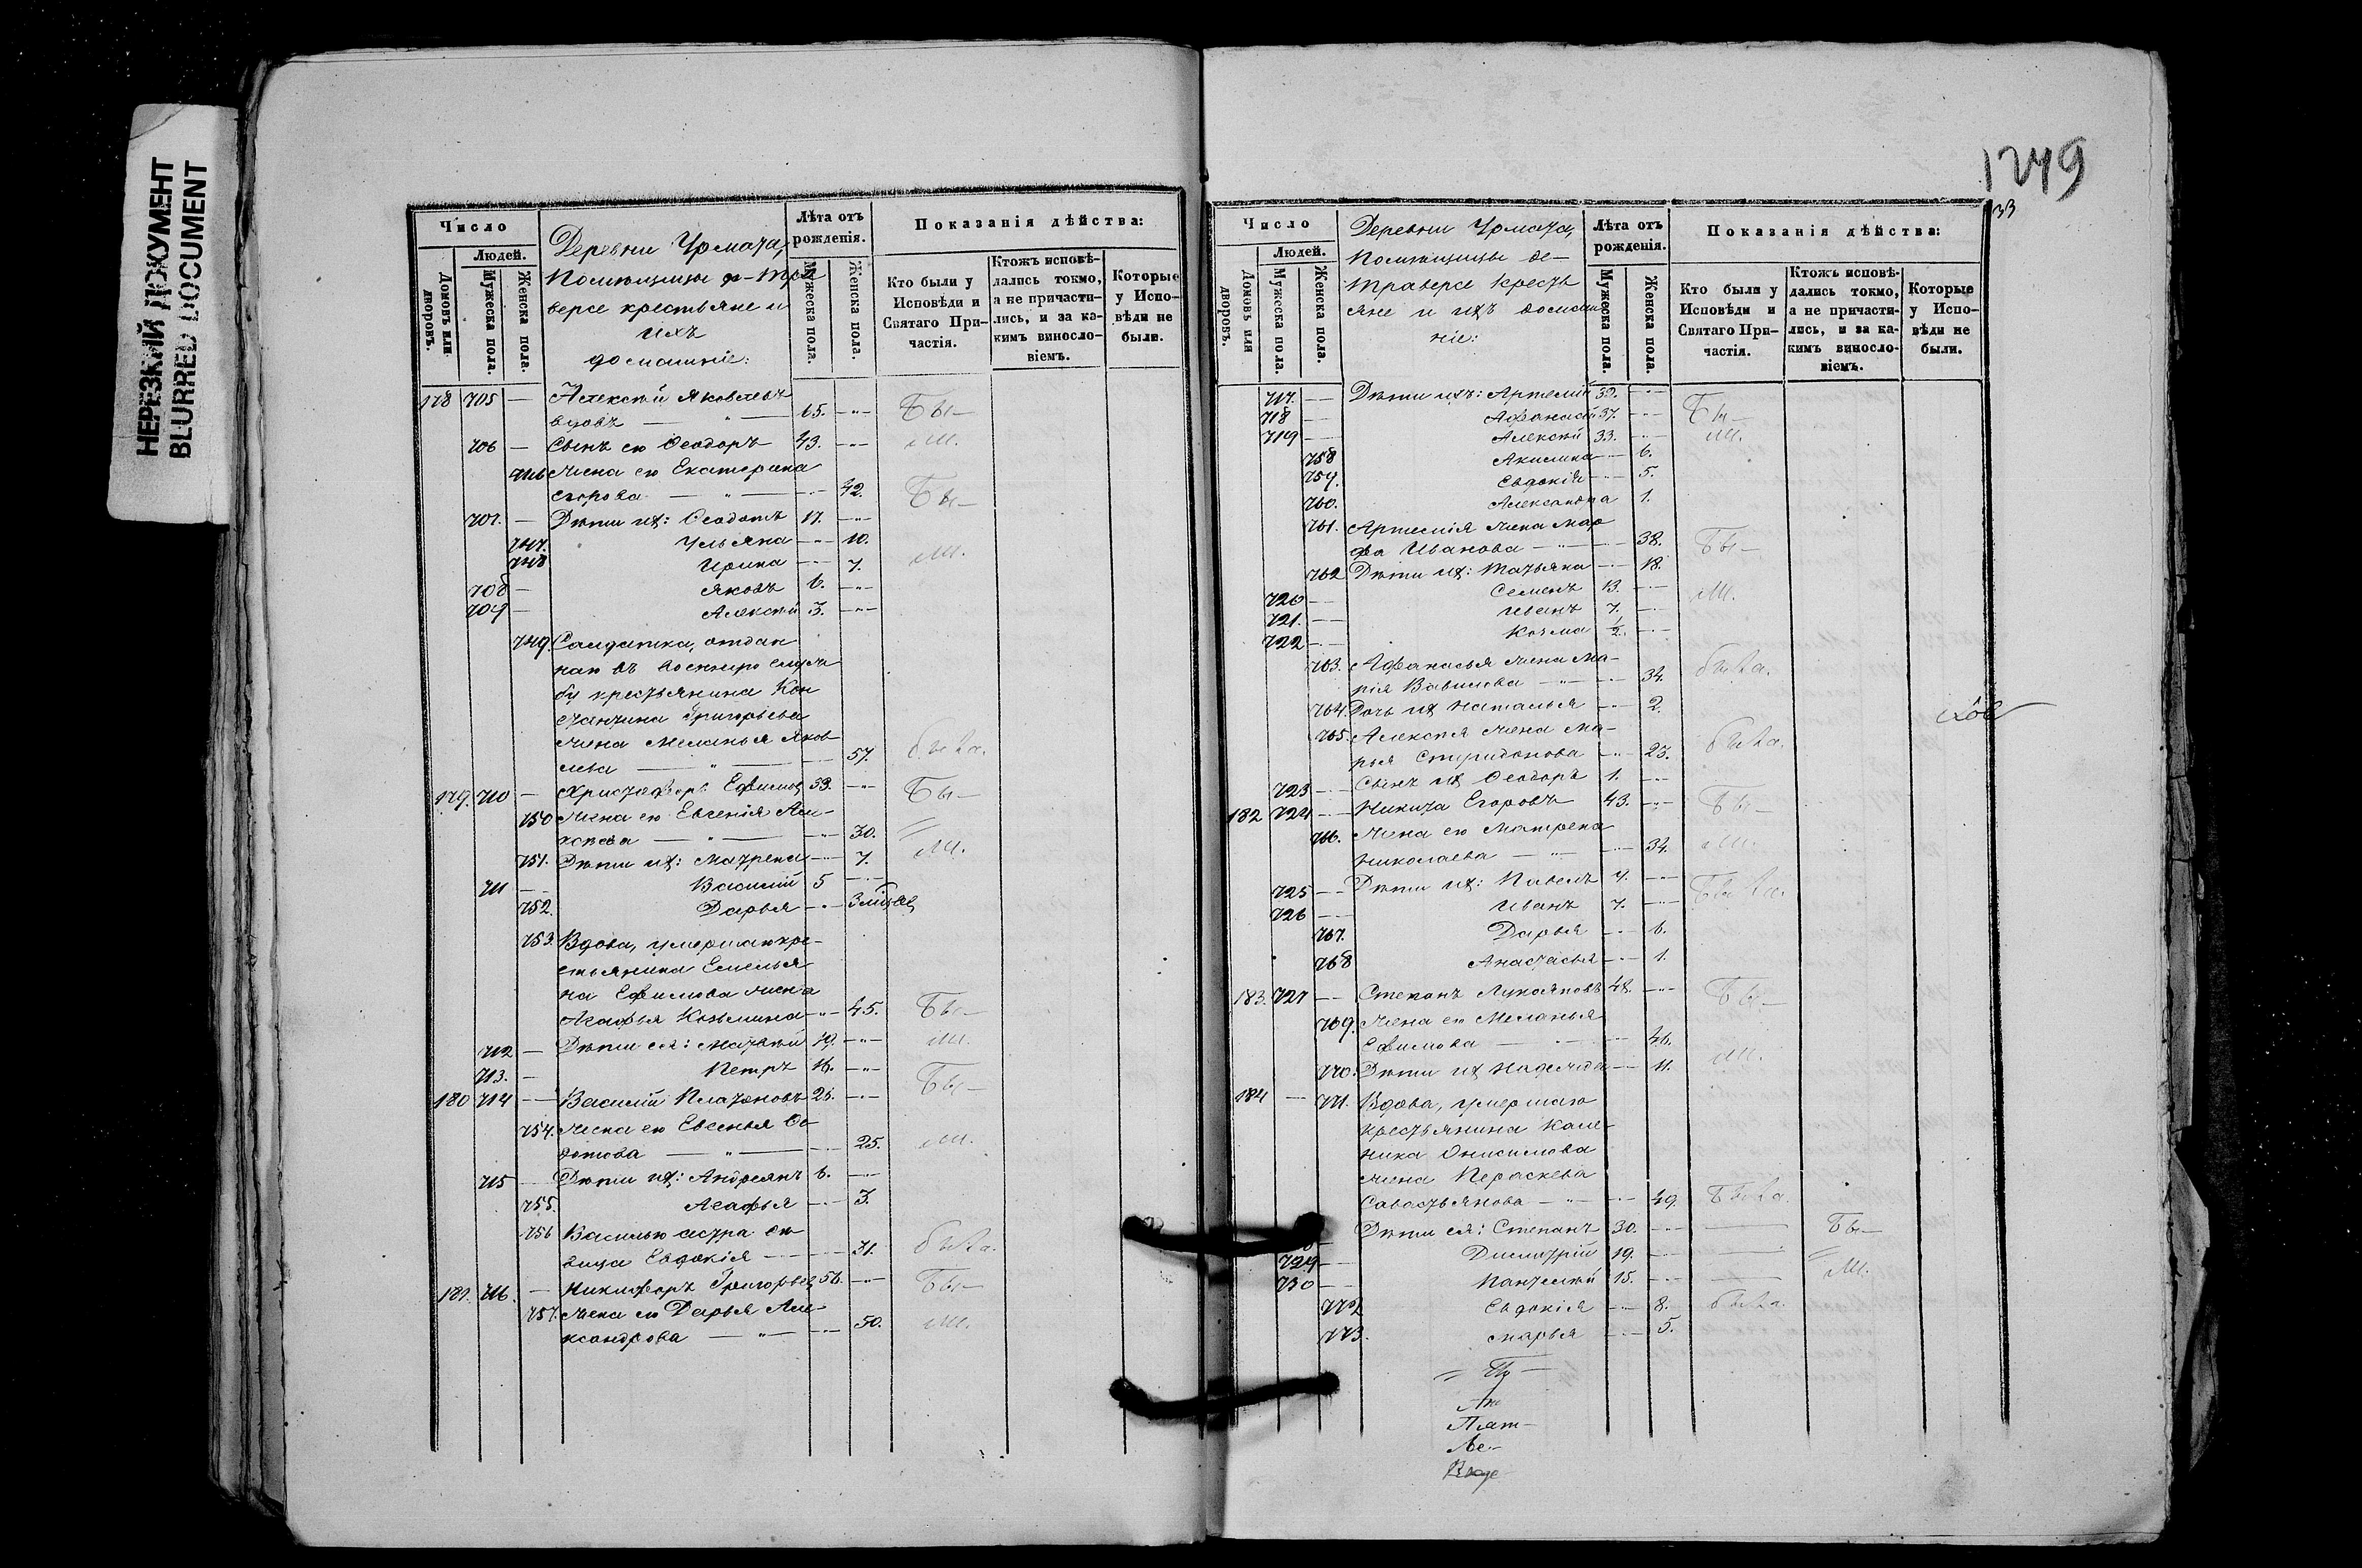 НЕРЕЗКИЙ ДОКУМЕНТ
BLURRED DOCUMENT
Число
Людей.
Домовъ или дворовъ.
Мужеска пола.
Женска пола.
Деревни Урмата,
Помѣщицы де-Тра
версе крестьяне и
ихъ
домашніе:
Лѣта отъ рожденія.
Мужеска пола.
Женска пола.
Показанія дѣйства:
Кто были у Исповѣди и Святаго При-частія.
Ктожъ исповѣ-дались токмо, а не причасти-лись, и за ка-кимъ виносло-віемъ.
Которые у Испо-вѣди не были.
178 705 — Алексѣй Яковлевъ
вдовъ — " — 65. -"- Бы-
706 — Сынъ его Ѳеодоръ 43. -"- ли.
746 Жена его Екатерина
Егорова — " — -"- 42. Бы-
707. — Дѣти ихъ: Ѳеодотъ 17. -"-
747. Ульяна -"- 10.
748 Ирина -"- 7. ли.
708 — Яковъ 6. -"-
709 — Алексѣй 3. -"-
749. Салдатка, отдан
наго въ военную служ
бу крестьянина Кон
стантина Григорьева
жена Меланья Яков
лева — " — 57. была.
179. 710 — Христофоръ Ефимовъ 33. -"- Бы-
750 Жена его Евгенія Але-
ксѣева — " — -"- 30.
751. Дѣти ихъ: Матрена -"- 7. ли.
711 — Василій 5 -"-
752. Дарья -"- 3 мѣсяц
753. Вдова, умершаго кре-
стьянина Емелья
на Ефимова жена
Агафья Козьмина -"- 45. Бы-
712 — Дѣти ея: Матвѣй 19. -"- ли.
713. — Петръ 16. -"-
180 714 — Василій Платоновъ 26. -"- Бы-
754. Жена его Евгенья Ѳе
дотова — " — -"- 25. ли.
715 — Дѣти ихъ: Андреянъ 6. -"-
755. Агафья -"- 3.
756 Василью сестра дѣ
вица Евдокія -"- 31. была.
181. 716. — Никифоръ Григорьев 56. -"- Бы-
757. Жена его Дарья Але-
ксандрова — " — -"- 50. ли.
1249
33
Число
Людей.
Домовъ или дворовъ.
Мужеска пола.
Женска пола.
Деревни Урмата,
Помѣщицы де-
Траверсе кресть
яне и ихъ домаш
ніе:
Лѣта отъ рожденія.
Мужеска пола.
Женска пола.
Показанія дѣйства:
Кто были у Исповѣди и Святаго При-частія.
Ктожъ исповѣ-дались токмо, а не причасти-лись, и за ка-кимъ виносло-віемъ.
Которые у Испо-вѣди не были.
717. — Дѣти ихъ: Артемій 39. -"-
718 — Афанасій 37. -"- Бы-
719 — Алексѣй 33. -"- ли.
758 Акилина -"- 6.
759. Евдокія -"- 5.
760. Александра 1.
761. Артемія жена Мар
фа Иванова -"- 38. Бы-
762 Дѣти ихъ: Татьяна -"- 18.
720 — Семенъ 13. -"- ли.
721. — Иванъ 7. -"-
722 — Козма 1/2. -"-
763. Афанасья жена Ма-
рія Вавилова -"- 34. была.
764. Дочь ихъ Наталья -"- 2.
765. Алексѣя жена Ма-
рья Спиридонова -"- 23. была.
723 — Сынъ ихъ Ѳеодоръ 1. -"-
182 724 — Никита Егоровъ 43. -"- Бы-
766. Жена его Матрена
Николаева -"- 34. ли.
725 — Дѣти ихъ: Павелъ 9. -"- Была.
726 — Иванъ 7. -"-
767. Дарья -"- 6.
768 Анастасья -"- 1.
183. 727 — Степанъ Лукояновъ 48. -"- Бы-
769. Жена его Меланья
Ефимова -"- 46.
770. Дѣти ихъ Надежда -"- 11. ли.
184 — 771. Вдова, умершаго
крестьянина Кале-
ника Онисимова
жена Пераскева
Савастьянова -"- 49. Была.
Дѣти ея: Степанъ 30. -"- — Бы-
729 — Димитрій 19. -"- —
730 — Пантелѣй 15. -"- — ли.
772 Евдокія -"- 8. была.
773. Марья -"- 5.